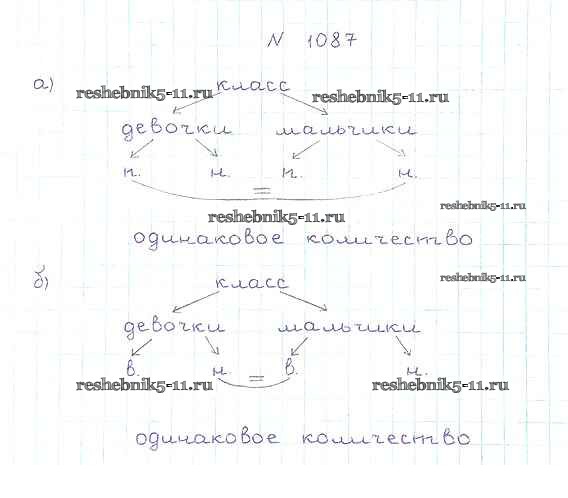 N 1087
а) reshebnik5-11.ru класс reshebnik5-11.ru
девочки мальчики
п. н. п. н.
=
reshebnik5-11.ru reshebnik5-11.ru
одинаковое количество
б) класс reshebnik5-11.ru
девочки мальчики
в. н. = в. н.
reshebnik5-11.ru reshebnik5-11.ru
одинаковое количество